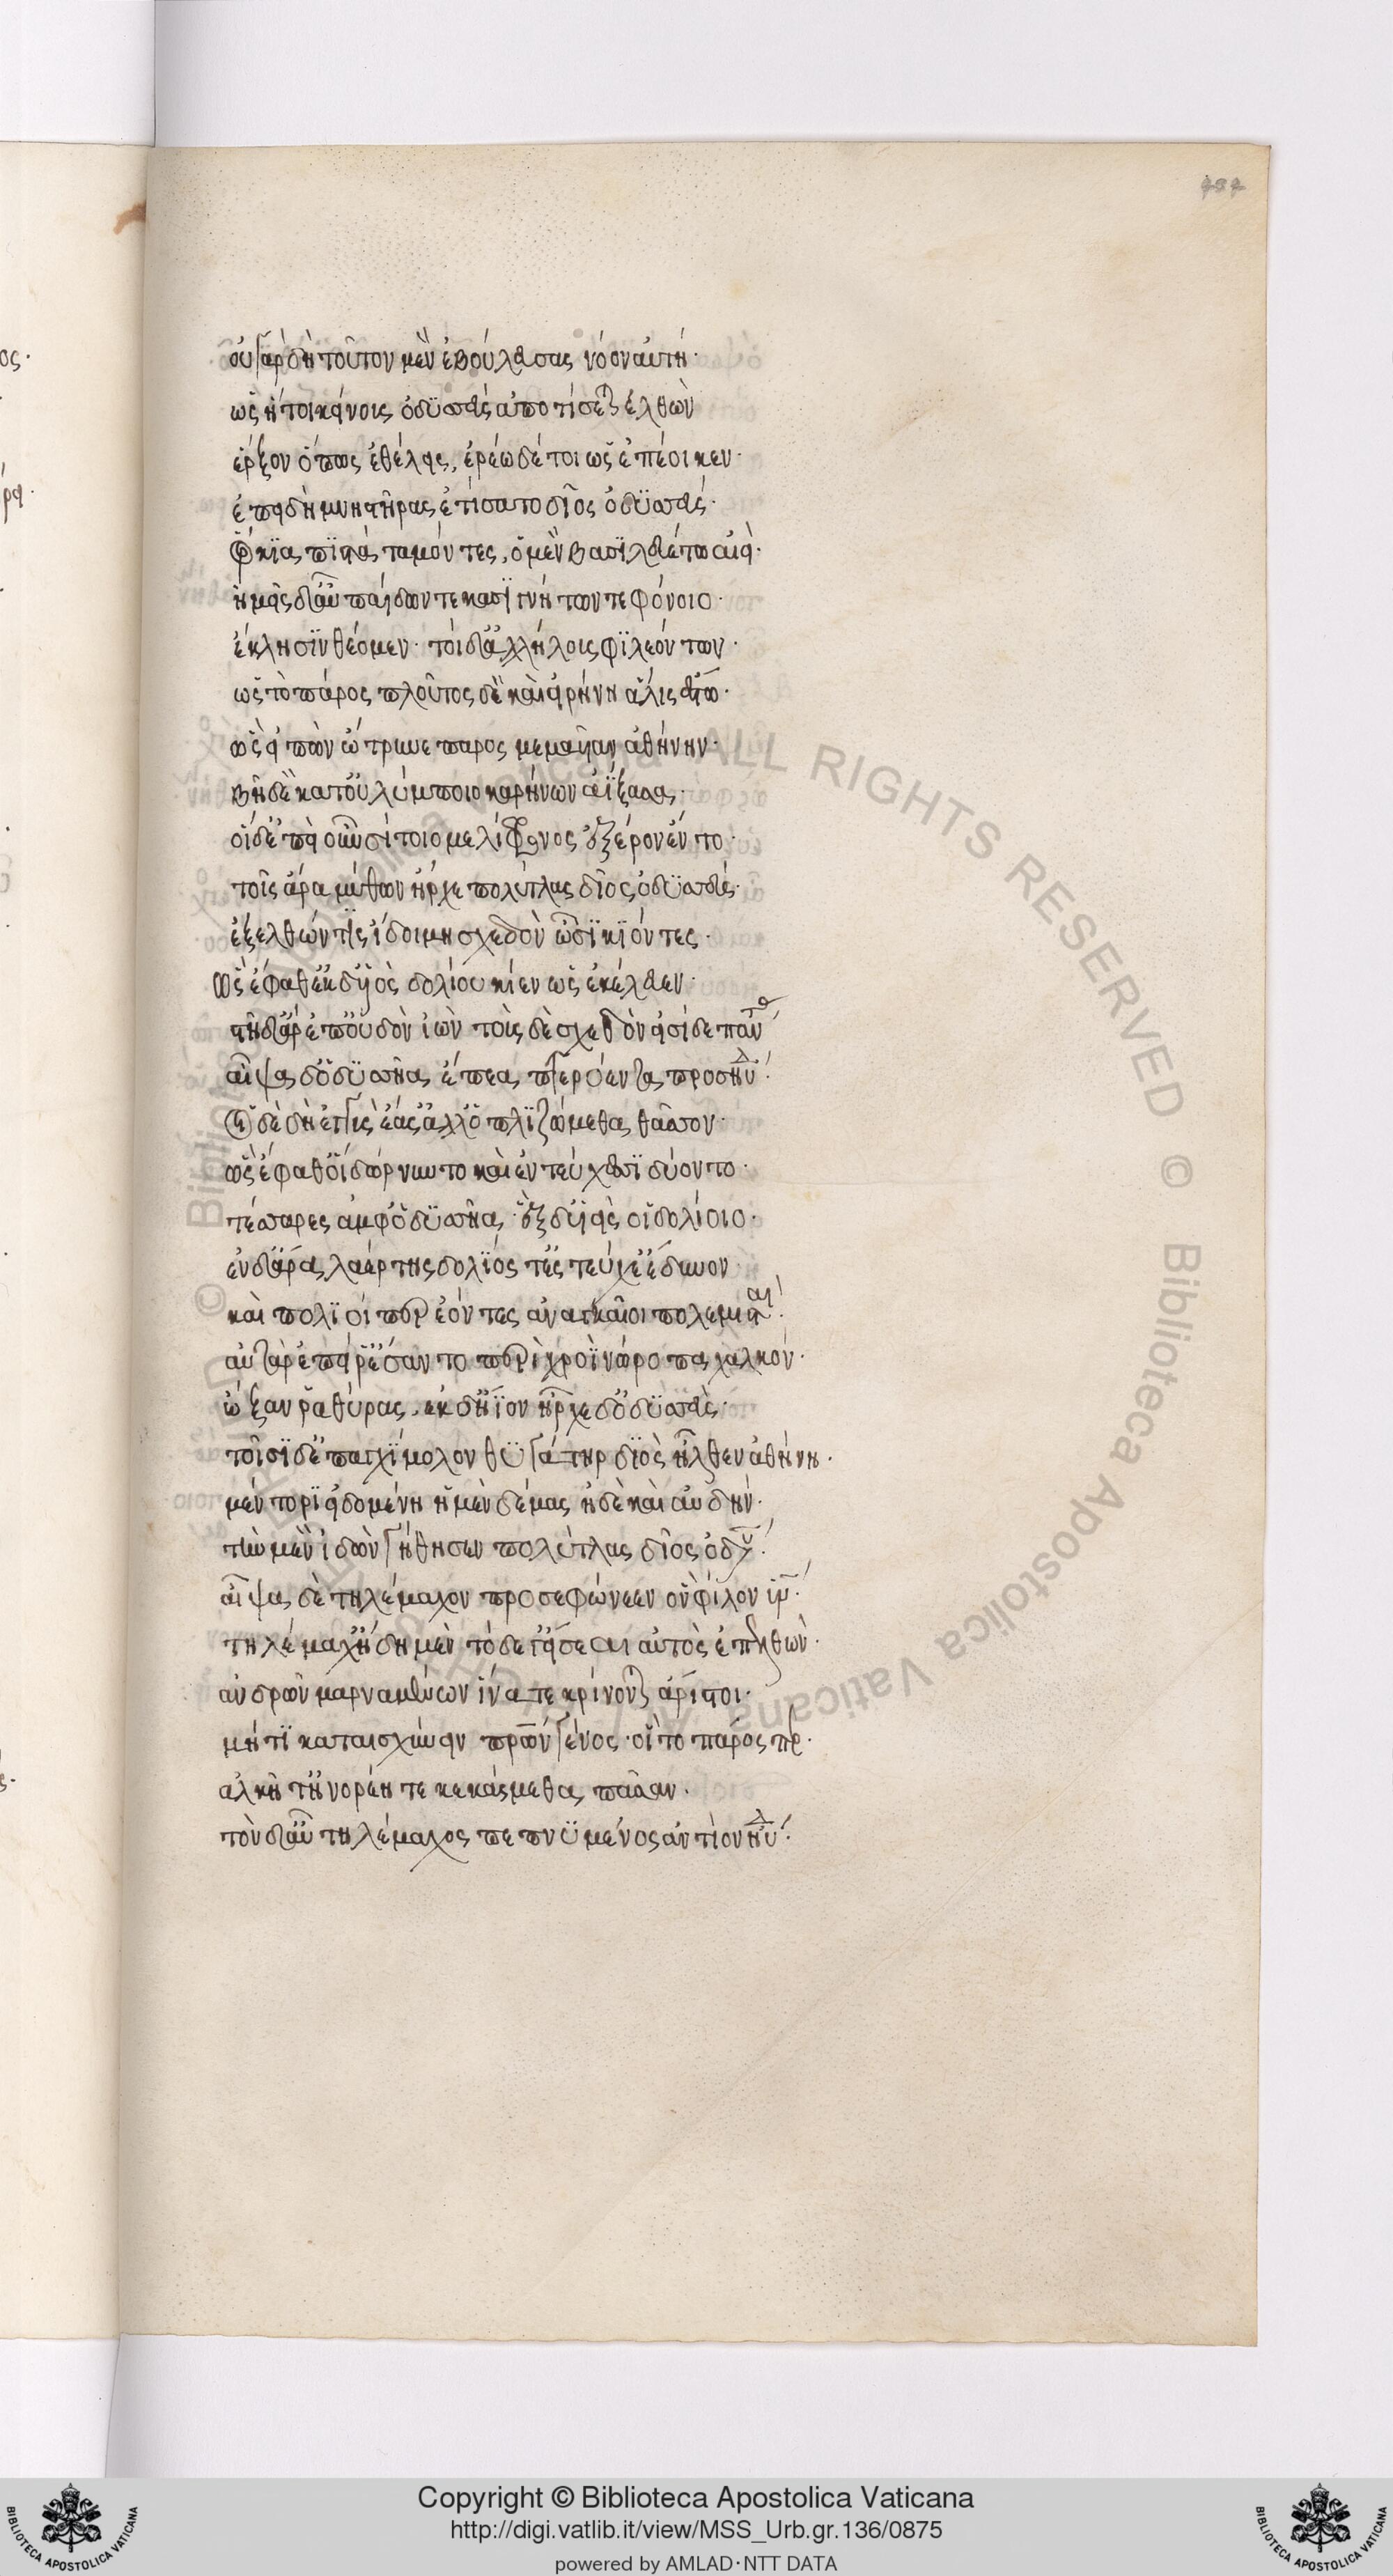 434
οὐ γὰρ δὴ τοῦτον μὲν ἐβούλευσας νόον αὐτή·
ὡς ἤτοι κείνους ὀδυσσεὺς ἀποτίσεται ἐλθών
ἔρξον ὅπως ἐθέλεις, ἐρέω δέ τοι ὡς ἐπέοικεν·
ἐπειδὴ μνηστῆρας ἐτίσατο δῖος ὀδυσσεύς·
ὅρκια πιστὰ ταμόντες, ὁ μὲν βασιλευέτω αἰεί·
ἡμεῖς δ' αὖ παίδων τε κασιγνήτων τε φόνοιο·
ἔκλησιν θέομεν· τοὶ δ' ἀλλήλοις φιλεόντων·
ὡς τὸ πάρος πλοῦτος δὲ καὶ εἰρήνη ἅλις ἔστω·
ὣς εἰπὼν ὤτρυνε παρος μεμαυῖαν ἀθήνην·
βῆ δὲ κατ' οὐλύμποιο καρήνων ἀΐξασα·
οἱ δ' ἐπεὶ οὖν σίτοιο μελίφρονος ἐξ ἔρον ἕντο·
τοῖς ἄρα μύθων ἦρχε πολύτλας δῖος ὀδυσσεύς·
ἐξελθών τις ἴδοι μὴ σχεδὸν ὦσι κιόντες·
ὣς ἔφατ' ἐκ δ' υἱὸς δολίου κίεν ὡς ἐκέλευεν·
στῆ δ' ἄρ' ἐπ' οὐδὸν ἰὼν τοὺς δὲ σχεδὸν εἴσιδε παντα
αἶψα δ' ὀδυσσῆα ἔπεα πτερόεντα προσηύδα·
οἵδε δὴ ἐγγὺς ἔας' ἀλλ' ὁπλιζώμεθα θᾶσσον·
ὣς ἔφαθ' οἱ δ' ὤρνυντο καὶ ἐν τεύχεσι δύοντο·
τέσσαρες ἀμφ' ὀδυσσῆα, ἓξ δ' υἱεῖς οἱ δολίοιο·
ἐν δ' ἄρα λαέρτης δολίος τ' ἐς τεύχε' ἔδυνον
καὶ πολιοί περ ἐόντες ἀναγκαῖοι πολεμισταί·
αὐτὰρ ἐπεί ῥ' ἕσσαντο περὶ χροῒ νώροπα χαλκόν·
ὤϊξαν ῥα θύρας, ἐκ δ' ἤϊον ἦρχε δ' ὀδυσσεύς·
τοῖσι δ' ἐπ' ἀγχίμολον θυγάτηρ διὸς ἦλθεν ἀθήνη·
μέντορι εἰδομένη ἠμὲν δέμας ἠδὲ καὶ αὐδήν·
τὴν μὲν ἰδὼν γήθησεν πολύτλας δῖος ὀδυ·
αἶψα δὲ τηλέμαχον προσεφώνεεν ὃν φίλον υἱόν·
τηλέμαχ' ἤδη μὲν τόδε γ' εἴσεαι αὐτὸς ἐπελθών·
ἀνδρῶν μαρναμένων ἵνα τε κρίνονται ἄριστοι·
μήτι καταισχύνειν πατέρων γένος· οἳ τὸ πάρος περ·
ἀλκῇ τ' ἠνορέῃ τε κεκάσμεθα πᾶσαν·
τὸν δ' αὖ τηλέμαχος πεπνυμένος ἀντίον ηὔδα·
© Biblioteca Apostolica Vaticana ALL RIGHTS RESERVED © Biblioteca Apostolica Vaticana ALL RIGHTS RESERVED
Copyright © Biblioteca Apostolica Vaticana
http://digi.vatlib.it/view/MSS_Urb.gr.136/0875
powered by AMLAD·NTT DATA
BIBLIOTECA APOSTOLICA VATICANA
BIBLIOTECA APOSTOLICA VATICANA